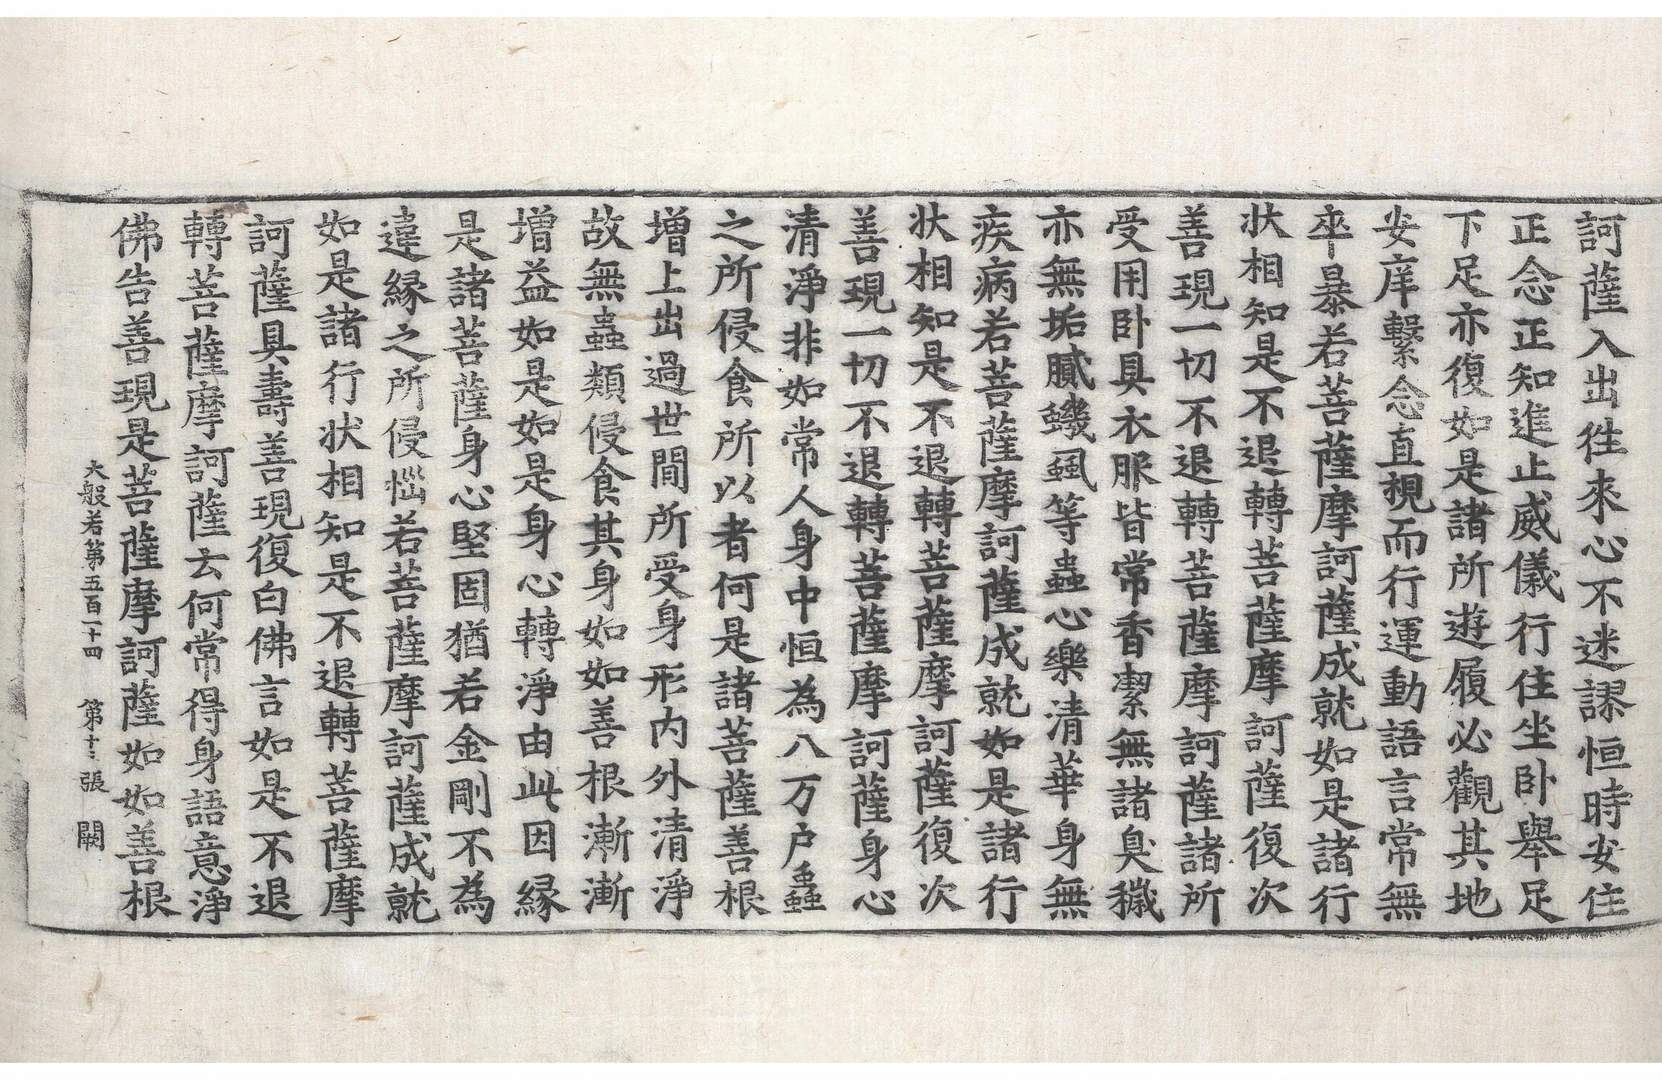 訶薩入出往來心不迷謬恒時安住
正念正知進止威儀行住坐卧舉足
下足亦復如是諸所遊履必觀其地
安庠繫念直視而行運動語言常無
卒暴若菩薩摩訶薩成就如是諸行
狀相知是不退轉菩薩摩訶薩復次
善現一切不退轉菩薩摩訶薩諸所
受用卧具衣服皆常香潔無諸臭穢
亦無垢膩蟣虱等蟲心樂清華身無
疾病若菩薩摩訶薩成就如是諸行
狀相知是不退轉菩薩摩訶薩復次
善現一切不退轉菩薩摩訶薩身心
清淨非如常人身中恒為八万户蟲
之所侵食所以者何是諸菩薩善根
增上出過世間所受身形内外清淨
故無蟲類侵食其身如如善根漸漸
增益如是如是身心轉淨由此因緣
是諸菩薩身心堅固猶若金剛不為
違緣之所侵惱若菩薩摩訶薩成就
如是諸行狀相知是不退轉菩薩摩
訶薩具壽善現復白佛言如是不退
轉菩薩摩訶薩云何常得身語意淨
佛告善現是菩薩摩訶薩如如善根
大般若第五百一十四　第十二張　闕